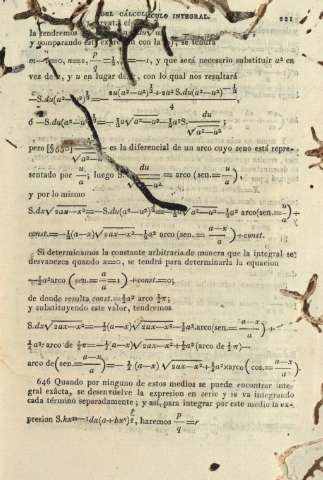 DEL CÁLCULO INTEGRAL. 221
la tendremos
y comparando esta expresion con la , se tendrá
m=0, n=2, p/q=½, ... =-1, y que será necesario substituir a² en
vez de , y u en lugar de , con lo qual nos resultará
-S.du(a²-u²)^½ =
ó -S.du(a²-u²)^½ = -½u√a²-u² -½a²S. du/√a²-u² ;
pero [§ ] du/√a²-u² es la diferencial de un arco cuyo seno está repre-
sentado por u/a ; luego S. du/√a²-u² = arco (sen.= u/a),
y por lo mismo
S.dx√2ax-x² = -S.du(a²-u²)^½ = -½u√a²-u² -½a² arco(sen.= u/a) +
const. = -½(a-x)√2ax-x² -½a² arco (sen.= a-x/a) + const.
Si determinamos la constante arbitraria de manera que la integral se
desvanezca quando x=0, se tendrá para determinarla la equacion
-½a²arco (sen.= a/a =1) + const.=0;
de donde resulta const.=½a² arco ½π;
y substituyendo este valor, tendremos
S.dx√2ax-x² = -½(a-x)√2ax-x² -½a².arco(sen.= a-x/a) +
½a² arco de ½π = -½(a-x)√2ax-x² +½a²(arco de ½π-
arco de(sen.= a-x/a) = -½(a-x)√2ax-x²+½a²×arco (cos.= a-x/a).
646 Quando por ninguno de estos medios se puede encontrar inte-
gral exâcta, se desenvuelve la expresion en serie y se va integrando
cada término separadamente; y así, para integrar por este medio la ex-
presion S.hx^m-1 dx(a+bx^n)^p/q, haremos p/q=r